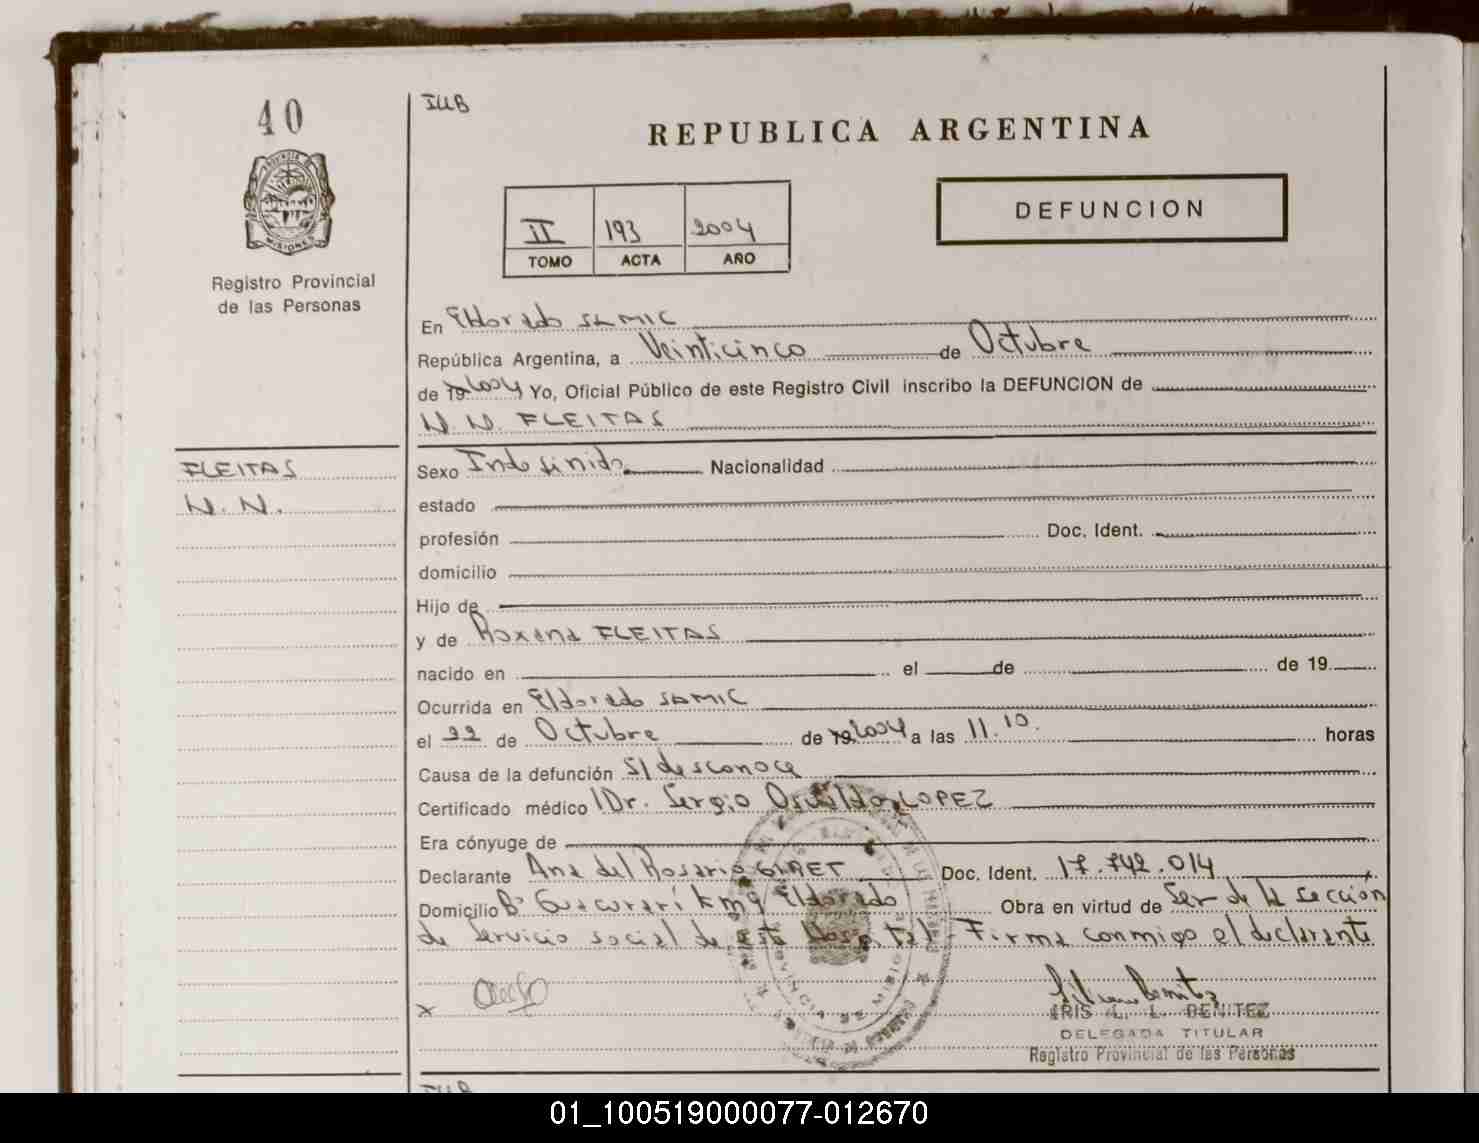 40
IUB
REPUBLICA ARGENTINA
II 193 2004
TOMO ACTA AÑO
DEFUNCION
PROVINCIA DE
MISIONES
Registro Provincial
de las Personas
En Eldorado SAMIC
República Argentina, a Veinticinco de Octubre
de 19 2004 Yo, Oficial Público de este Registro Civil inscribo la DEFUNCION de
N. N. FLEITAS
FLEITAS
N. N.
Sexo Indefinido Nacionalidad
estado
profesión Doc. Ident.
domicilio
Hijo de
y de Roxana FLEITAS
nacido en el de de 19
Ocurrida en Eldorado SAMIC
el 22 de Octubre de 19 2004 a las 11.10. horas
Causa de la defunción S/desconoce
Certificado médico Dr. Sergio Osvaldo LOPEZ
Era cónyuge de
Declarante Ana del Rosario Doc. Ident. 17.742.014
Domicilio Bº Guacurarí km 9 Eldorado Obra en virtud de Ser de la sección
de Servicio social de este Hospital - Firma conmigo el declarante
x
IRIS L. L. BENITEZ
DELEGADA TITULAR
Registro Provincial de las Personas
IUB
01_100519000077-012670